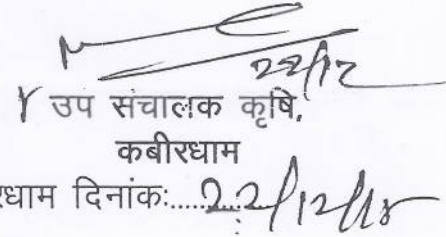 22/12
उप संचालक कृषि,
कबीरधाम
रधाम दिनांकः.....22/12/18